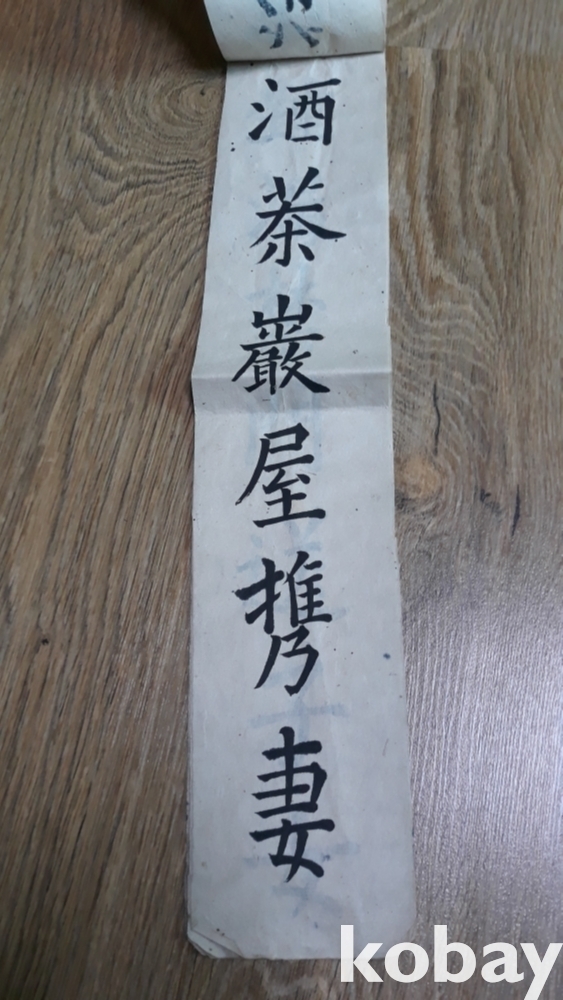 酒茶巖屋携妻
kobay